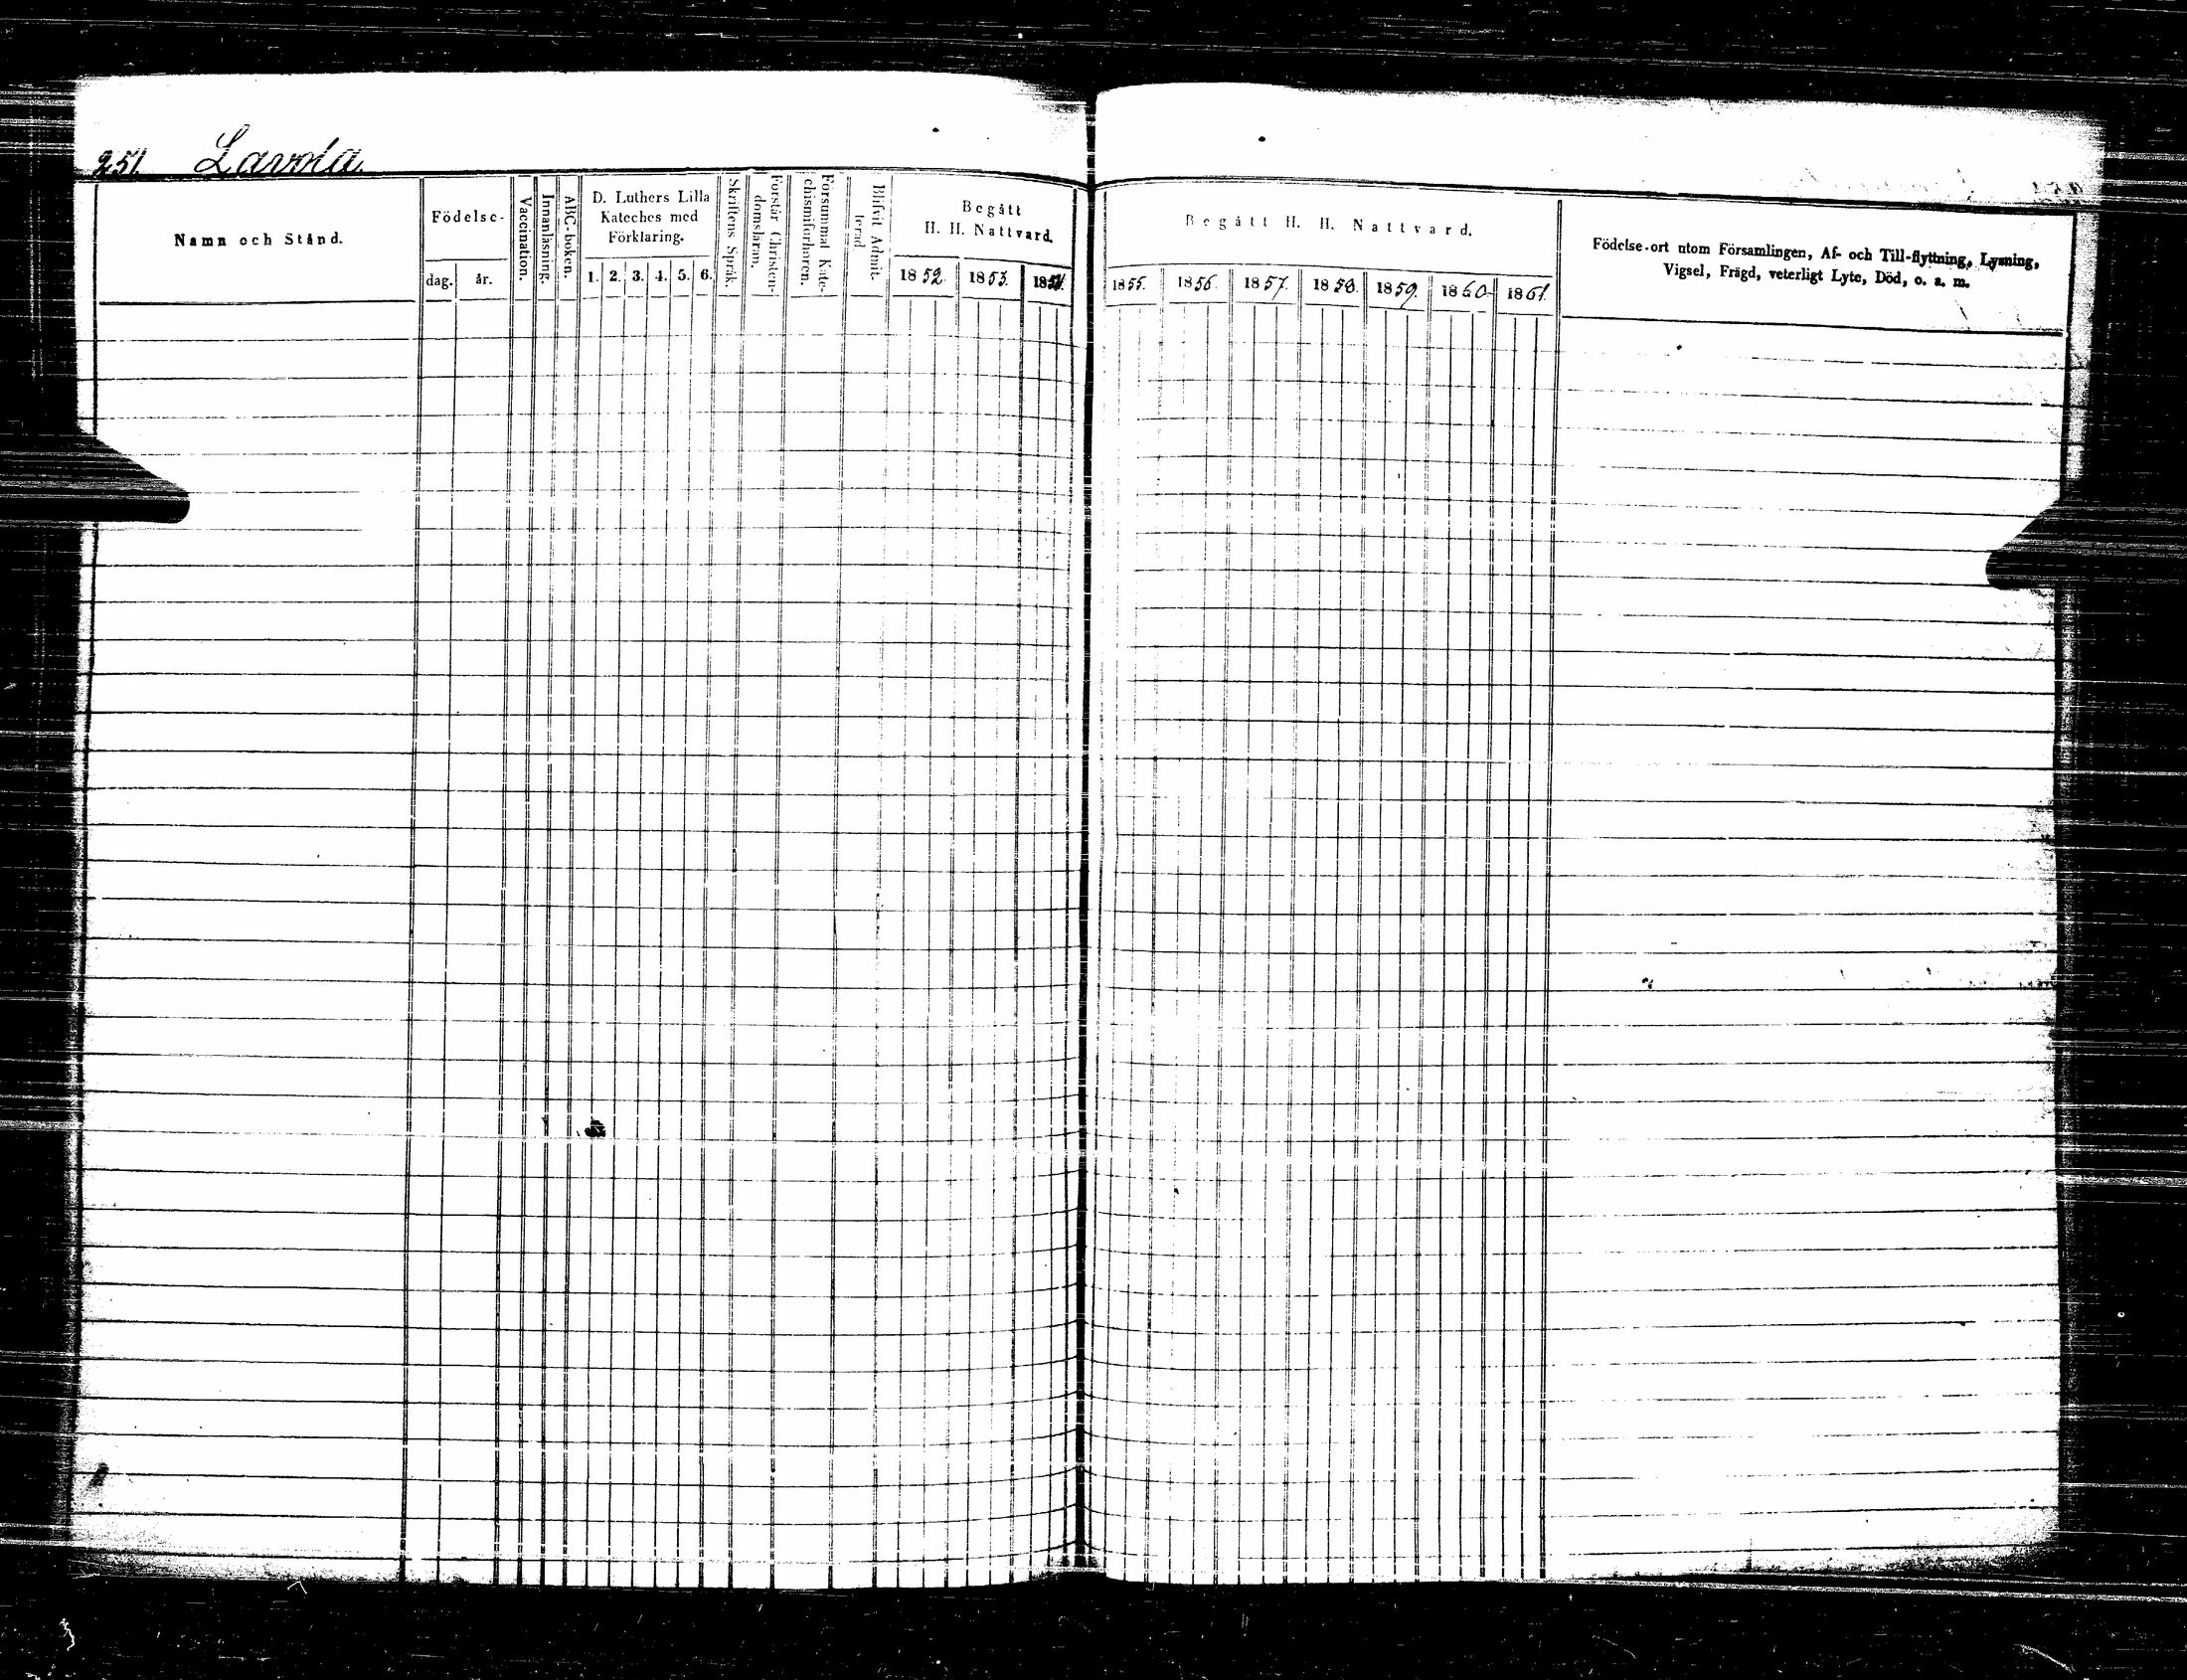 251. Lavola.
Namn och Stånd.
Födelse-
dag. år.
Vaccination.
Innanläsning.
ABC-boken.
D. Luthers Lilla
Kateches med
Förklaring.
1. 2. 3. 4. 5. 6.
Skriftens Språk.
Förstår Christen-
domsläran.
Försummat Kate-
chismiförhören.
Blifvit Admit-
terad
Begått
H. H. Nattvard.
1852. 1853. 1854.
Begått H. H. Nattvard.
1855. 1856. 1857. 1858. 1859. 1860. 1861.
Födelse-ort utom Församlingen, Af- och Till-flyttning, Lysning,
Vigsel, Frägd, veterligt Lyte, Död, o. s. m.